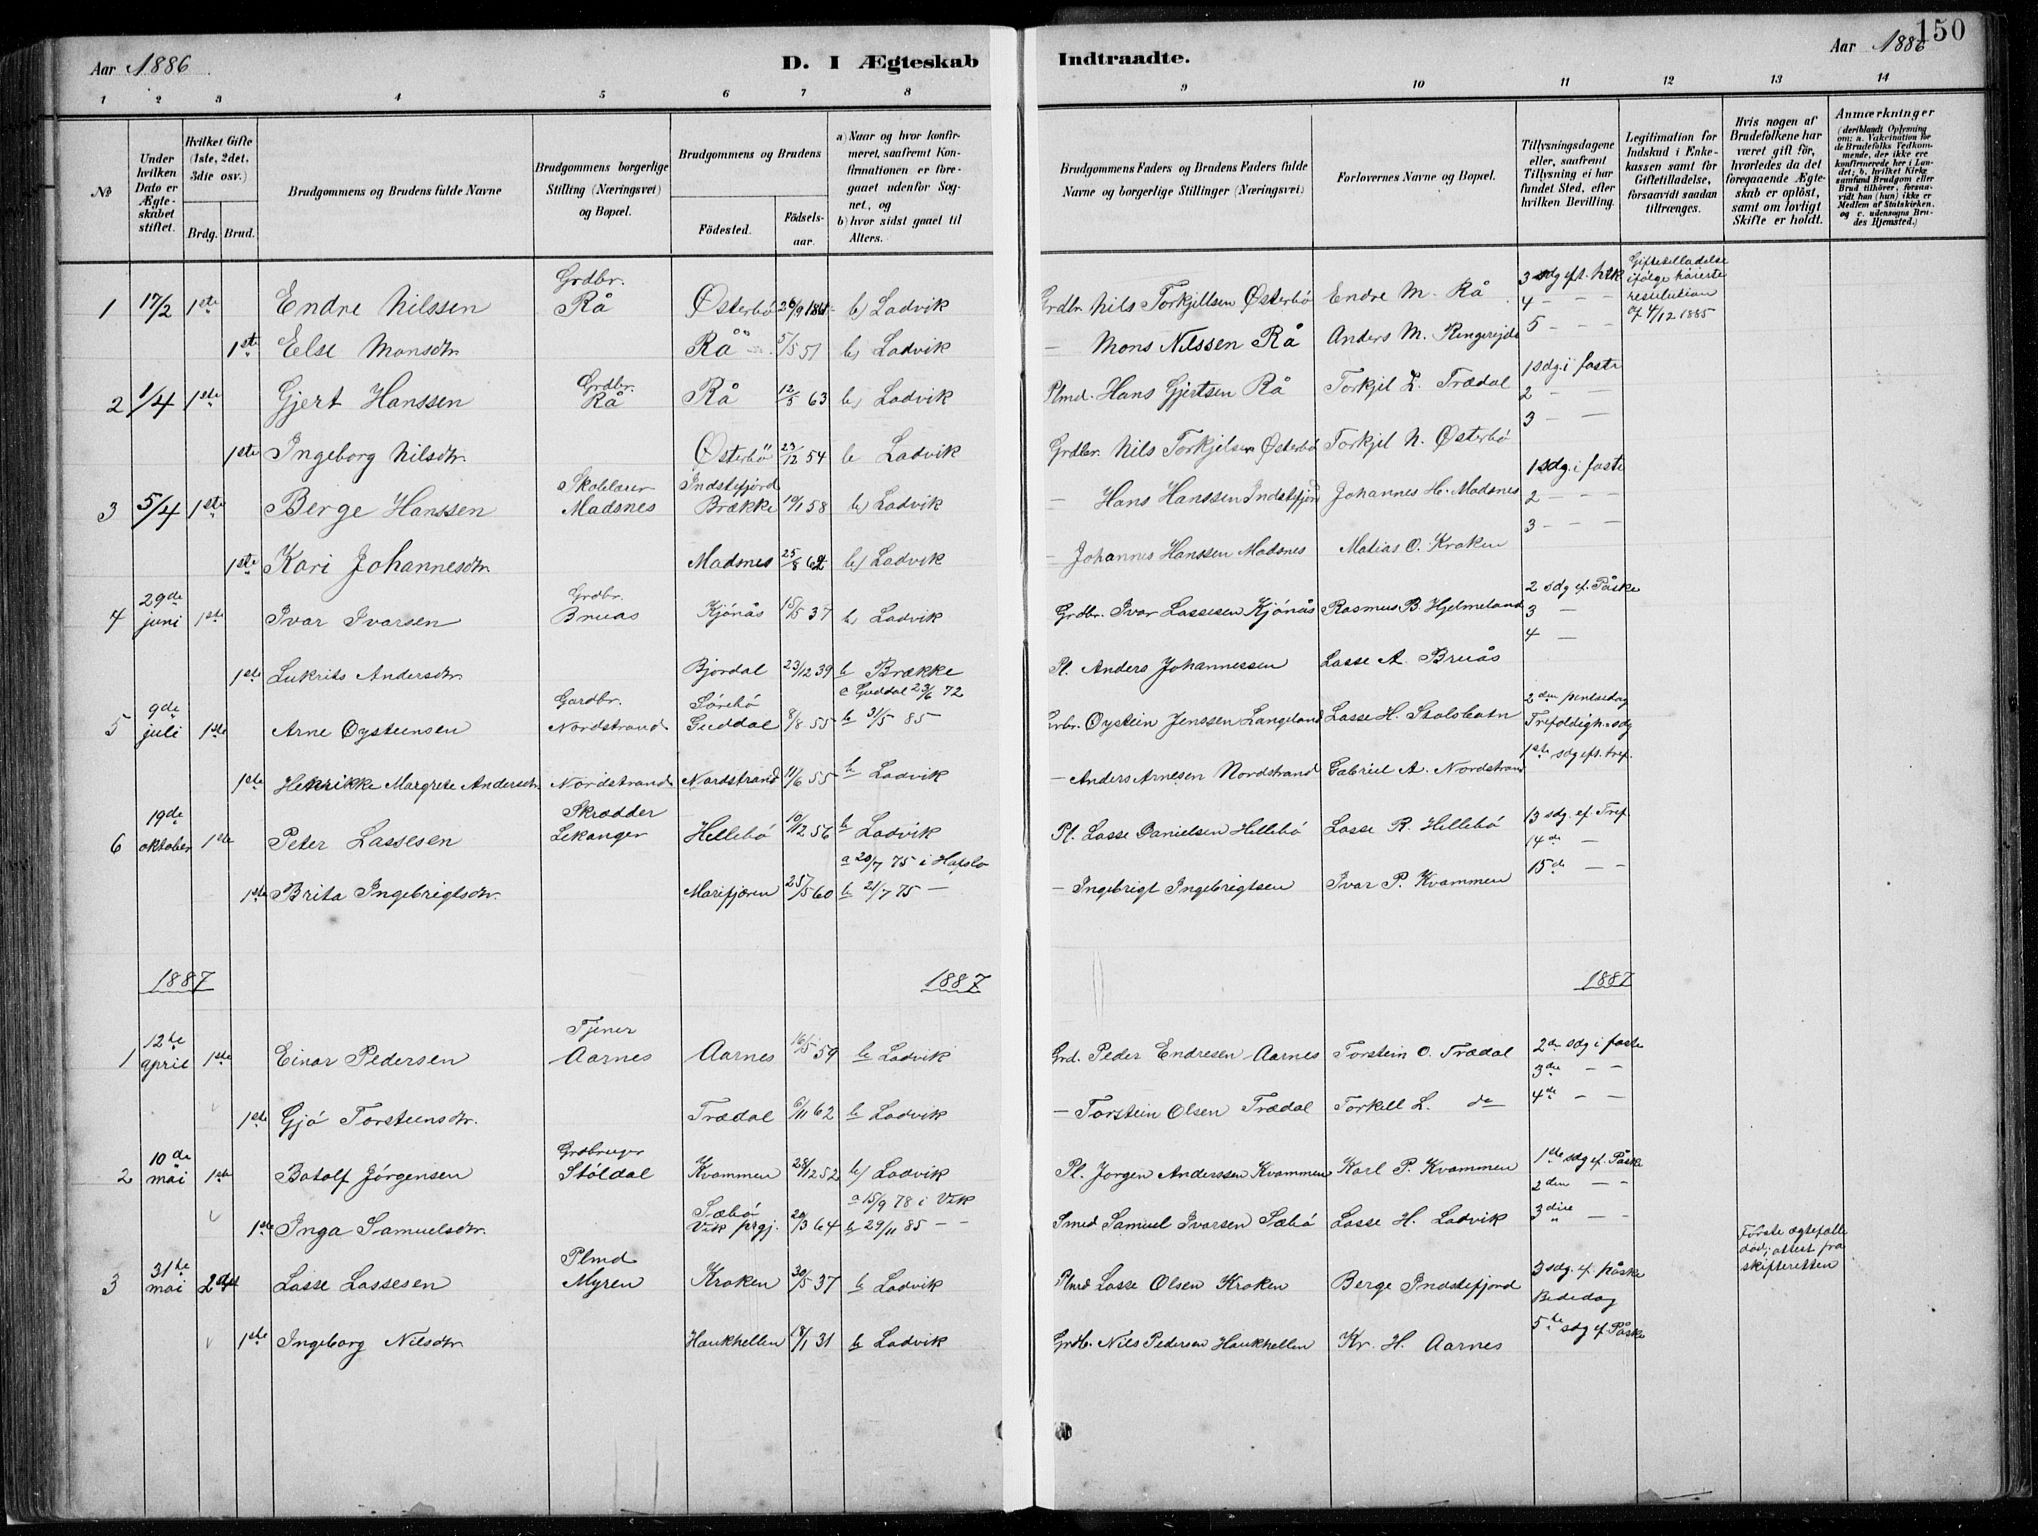 150
Aar 1886. D. I Ægteskab Indtraadte. Aar 1886
1 2 3 4 5 6 7 8 9 10 11 12 13 14
No
Under hvilken Dato er Ægteskabet stiftet.
Hvilket Gifte (1ste, 2det, 3die osv.)
Brdg. Brud.
Brudgommens og Brudens fulde Navne
Brudgommens borgerlige Stilling (Næringsvei) og Bopæl.
Brudgommens og Brudens
Födested. Födselsaar.
a) Naar og hvor konfirmeret, saafremt Konfirmationen er foregaaet udenfor Sognet, og
b) hvor sidst gaaet til Alters.
Brudgommens Faders og Brudens Faders fulde Navne og borgerlige Stillinger (Næringsvei)
Forlovernes Navne og Bopæl.
Tillysningsdagene eller, saafremt Tillysning ei har fundet Sted, efter hvilken Bevilling.
Legitimation for Indskud i Enkekassen samt for Giftetilladelse, forsaavidt saadan tiltrænges.
Hvis nogen af Brudefolkene har været gift før, hvorledes da det foregaaende Ægteskab er oplöst, samt om lovligt Skifte er holdt.
Anmærkninger
(deriblandt Oplysning om: a. Vakcination for de Brudefolks Vedkommende, der ikke ere konfirmerede her i Landet; b. hvilket Kirkesamfund Brudgom eller Brud tilhörer, forsaavidt han (hun) ikke er Medlem af Statskirken, og c. udensogns Brudes Hjemsted.)
1 17/2 1ste Endre Nilssen Grdbr. Rå Østerbø 26/9 1861 b) Ladvik Grdbr. Nils Torkjillsen Østerbø Endre M. Rå 3 sdg eft. h3k Giftetilladelse ifølge høieste resolution af 4/12 1885
4 — —
1ste Else Monsdtr. Rå 5/5 51 b) Ladvik — Mons Nilssen Rå Anders M. Ringereide 5 — —
2 1/4 1ste Gjert Hanssen Grdbr. Rå Rå 12/5 63 b) Ladvik Plmd. Hans Gjertsen Rå Torkjel L. Trædal 1 sdg. i faste
2 — —
3 — —
1ste Ingeborg Nilsdtr. Østerbø 23/12 54 b Ladvik Grdbr. Nils Torkjelsen Østerbø Torkjel N. Østerbø
3 5/4 1ste Berge Hanssen Skolelærer Madsnes Indstefjord Brække 10/1 58 b) Ladvik — Hans Hanssen Indstefjord Johannes H. Madsnes 1 sdg. i faste
2 — —
3 — —
1ste Kari Johannesdtr. Madsnes 25/8 62 b) Ladvik — Johannes Hanssen Madsnes Matias O. Kroken
4 29de juni 1ste Ivar Ivarsen Grdbr. Bruas Kjønås 15/5 37 b) Ladvik Grdbr. Ivar Lassesen Kjønås Rasmus B. Hjelmeland 2 sdg ef. Påske
3 —
4 —
1ste Lukrits Andersdtr. Bjordal 23/12 39 b Brække Pl. Anders Johannessen Lasse A. Bruås
5 9de juli 1ste Arne Oysteensen Gardbr. Nordstrand Sørebø Guddal 8/8 55 a Guddal 23/6 72 b 31/5 85 — Grbr. Oystein Jenssen Langeland Lasse H. Stolsbotn 2den pintsedag
Trefoldigh. sdg
1ste Henrikke Margrete Andersdtr. Nordstrand Nordstrand 11/6 55 b Ladvik — Anders Arnesen Nordstrand Gabriel A. Nordstrand 1ste sdg eft. tref.
6 19de oktober 1ste Peter Lassesen Skrædder Lekanger Hillebø 10/12 56 b Ladvik Pl. Lasse Danielsen Hillebø Lasse R. Hillebø 13 sdg. ef. Tref
14de —
15de —
1ste Brita Ingebrigtsdtr. Marifjøren 25/5 60 a 20/7 75 i Hafslo b 21/7 75 — — Ingebrigt Ingebrigtsen Ivar P. Kvammen
1887 1887 1887
1 12te april 1ste Einar Pedersen Tjener Aarnes Aarnes 16/5 59 b Ladvik Grd. Peder Endresen Aarnes Torstein O. Trædal 2den sdg i faste
3die — —
4de — —
1ste Gjø Torsteensdtr. Trædal 6/11 62 b Ladvik — Torstein Olsen Trædal Torkell L. do
2 10de mai 1ste Botolf Jørgensen Grdbruger Støldal Kvammen 28/12 52 b) Ladvik Pl. Jorgen Anderssen Kvammen Karl P. Kvammen 1ste sdg ef. Påske
2den — —
1ste Inga Samuelsdtr. Sæbø Vik prgj. 20/3 64 a 15/9 78 i Vik b 29/11 85 — — Smed Samuel Ivarsen Sæbø Lasse H. Ladvik 3die — —
3 31te mai 2det Lasse Lassesen Plmd Myren Kroken 30/5 37 b Ladvik Plmd Lasse Olsen Kroken Berge Indstefjord 3 sdg. ef. påske Første ægtefælle død; attest fra skifteretten
Bededag
1ste Ingeborg Nilsdtr. Haukhellen 18/1 31 b Ladvik Grdb. Nils Pedersen Haukhellen Kr. H. Aarnes 5te sdg ef. Påske